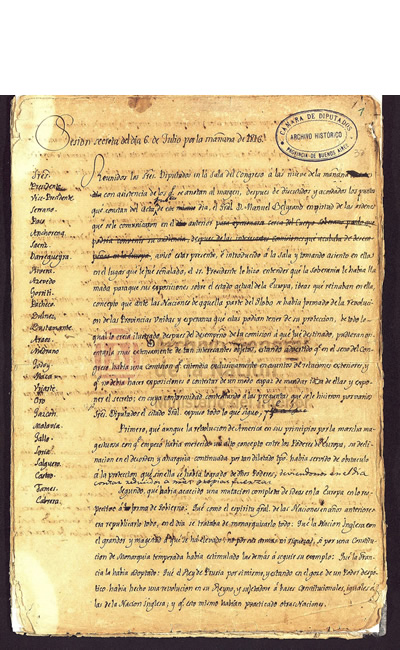 Sesion secreta del dia 6 de Julio por la mañana de 1816
CAMARA DE DIPUTADOS
ARCHIVO HISTÓRICO
PROVINCIA DE BUENOS AIRES
Sres.
Presidente
Vice-Presidente
Serrano
Paso
Anchorena
Saenz
Darregueyra
Rivera
Acevedo
Gorriti
Pacheco
Bulnes
Bustamante
Araoz
Medrano
Godoy
Maza
Uriarte
Oro
Gascon
Malavia
Gallo
Loria
Salguero
Castro
Tames
Cabrera
Reunidos los Sres. Diputados en la sala del Congreso a las nueve de la mañana
con asistencia de los q.e se anotan al margen, despues de discutidos y acordados los puntos
que constan del Acta de dia, el Gral. D. Manuel Belgrano en virtud de las ordenes
que se le comunicaron en el dia anterior
avisó estar presente, é introducido a la sala y tomando asiento en ella
en el lugar que le fue señalado, el Sr. Presidente le hizo entender que la Soberania le habia lla
mado para que sus exposiciones sobre el estado actual de la Europa, ideas que reinaban en ella,
concepto que ante las Naciones de aquella parte del Globo se habia formado de la Revolu
cion de las Provincias Unidas y esperanza que estas podian tener de su proteccion, de todo lo
qual lo creia ilustrado despues del desempeño de la comision á que fue destinado, pudieran
de tan interesantes objetos, estando advertido q.e en el seno del Con
greso habia una Comision q.e entendia exclusivamente en asuntos de relaciones exteriores, y
q.e no debia hacer exposiciones ó contestar de un modo capaz de mandar idea de ella y expo
ner el secreto; en cuya conformidad contestando á las preguntas que se le hicieron por varios
Sres. Diputados el citado Gral. expuso todo lo que sigue
Primero, que aunque la revolucion de America en sus principios por la marcha ma
gestuosa con q.e empezó habia merecido un alto concepto entre los Poderes de Europa, su decli
nacion en el desorden y anarquia continuada por tan dilatado tpo. habia servido de obstaculo
á la proteccion, que sin ella se habria logrado de dhos Poderes; debiendonos en el dia
contar reducidos a nuestras propias fuerzas.
Segundo, que habia acaecido una mutacion completa de ideas en la Europa en lo res
pectivo á la forma de Gobierno: Que como el espiritu gral. de las Naciones en años anteriores era
republicarlo todo, en el dia se trataba de monarquizarlo todo: Que la Nacion Inglesa con
el grandor y magestad á que se ha elevado, no por sus armas y riquezas, si por una Constitu
cion de Monarquia temperada habia estimulado las demás á seguir su exemplo: Que la Fran
cia la habia adoptado: Que el Rey de Prusia por si mismo, y estando en el goce de un Poder despo
tico habia hecho una revolucion en su Reyno, y sujetadose á bases Constitucionales, iguales á
las de la Nacion Inglesa; y q.e esto mismo habian practicado otras Naciones.